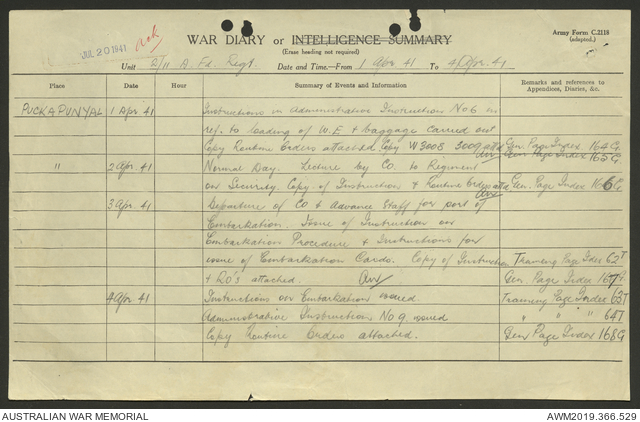 JUL 20 1941
WAR DIARY or INTELLIGENCE SUMMARY
(Erase heading not required)
Army Form C.2118
(adapted.)
Unit 2/11 A. Fd. Regt. Date and Time—From 1 Apr 41 To 4 Apr. 41
Place Date Hour Summary of Events and Information Remarks and references to Appendices, Diaries, &c.
PUCKAPUNYAL 1 Apr 41 Instructions in Administrative Instruction No 6 in
ref. to loading of W.E & baggage carried out
Copy Routine Orders attached. Copy W3008 3009 attd Gen. Page Index 164G
Gen Page Index 165G
" 2 Apr. 41 Normal Day. Lecture by Co. to Regiment
on Security. Copy of Instruction & Routine Orders attd Gen. Page Index 166G
3 Apr. 41 Departure of CO & Advance Staff for port of
Embarkation. Issue of Instruction on
Embarkation Procedure & Instructions for
issue of Embarkation Cards. Copy of Instruction Training Page Index 62T
& RO's attached. Gen. Page Index 167G
4 Apr. 41 Instructions on Embarkation issued. Training Page Index 63T
Administrative Instruction No 9. issued " " " 64T
Copy Routine Orders attached. Gen Page Index 168G
AUSTRALIAN WAR MEMORIAL
AWM2019.366.529